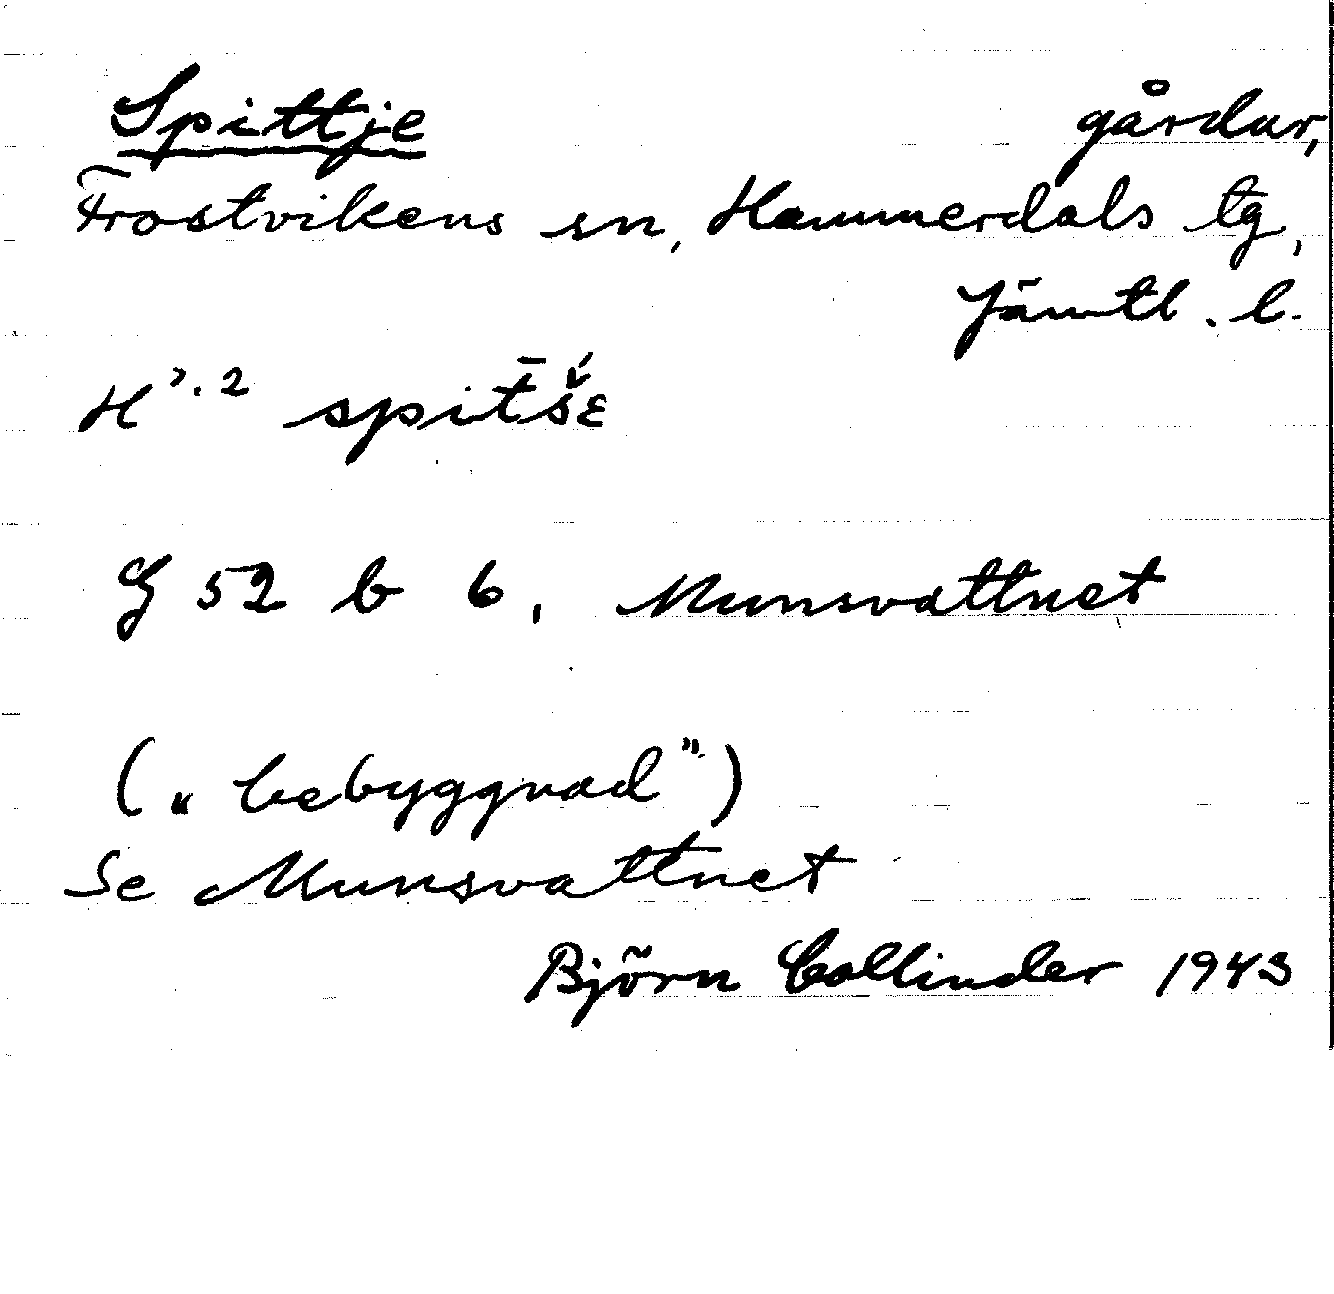 Spittje gårdar,
Frostvikens sn, Hammerdals tg,
Jämtl. l.
H³·² spit̄š́ɛ
G 52 b 6, Munsvattnet
(„bebyggnad”)
Se Munsvattnet
Björn Collinder 1943